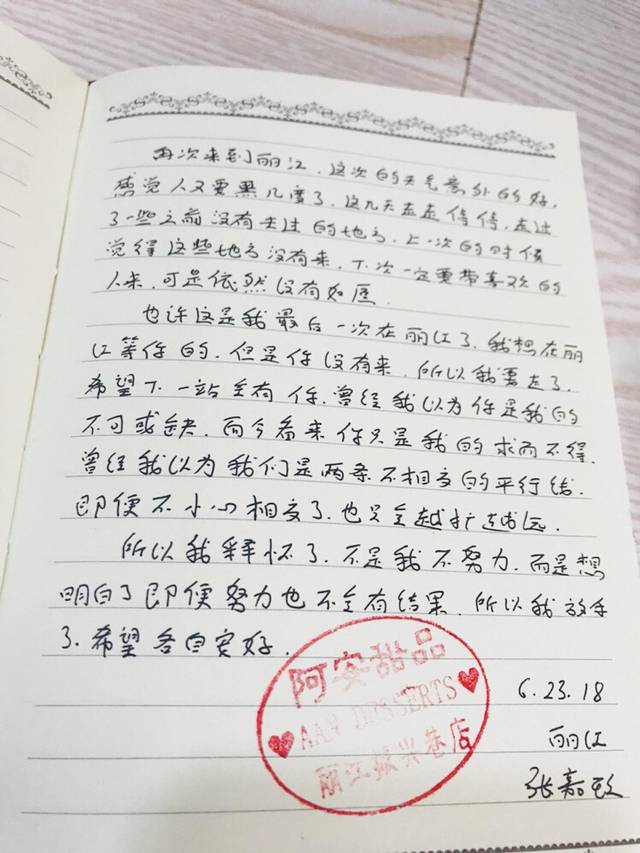 再次来到丽江，这次的天气意外的好，
感觉人又要黑几度了，这几天走走停停，走过
了一些之前没有去过的地方，上一次的时候
觉得这些地方没有来，下次一定要带喜欢的
人来，可是依然没有如愿。
也许这是我最后一次在丽江了，我想在丽
江等你的，但是你没有来，所以我要走了，
希望下一站会有你，曾经我以为你是我的
不可或缺，而今看来你只是我的求而不得，
曾经我以为我们是两条不相交的平行线，
即便不小心相交了，也只会越扩越远。
所以我释怀了，不是我不努力，而是想
明白了即便努力也不会有结果，所以我放手
了，希望各自安好。
阿安甜品
AAN DESSERTS
丽江振兴巷店
6.23.18
丽江
张嘉